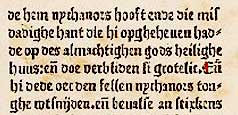 de hem nychanors hooft ende die mis
dadighe hant die hi opgheheuen had-
de op des almachtighen gods heilighe
huus: eñ doe verbliden si grotelic. Eñ
hi dede oec den seluen nychanors ton-
ghe wtsniden. eñ beualse an stixkens